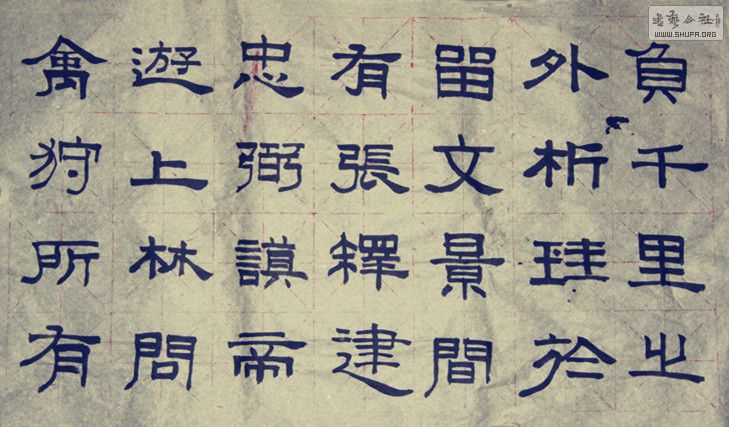 負千里之
外析珪於
留文景間
有張釋建
忠弼謨帝
遊上林問
禽狩所有
書藝公社
WWW.SHUFA.ORG